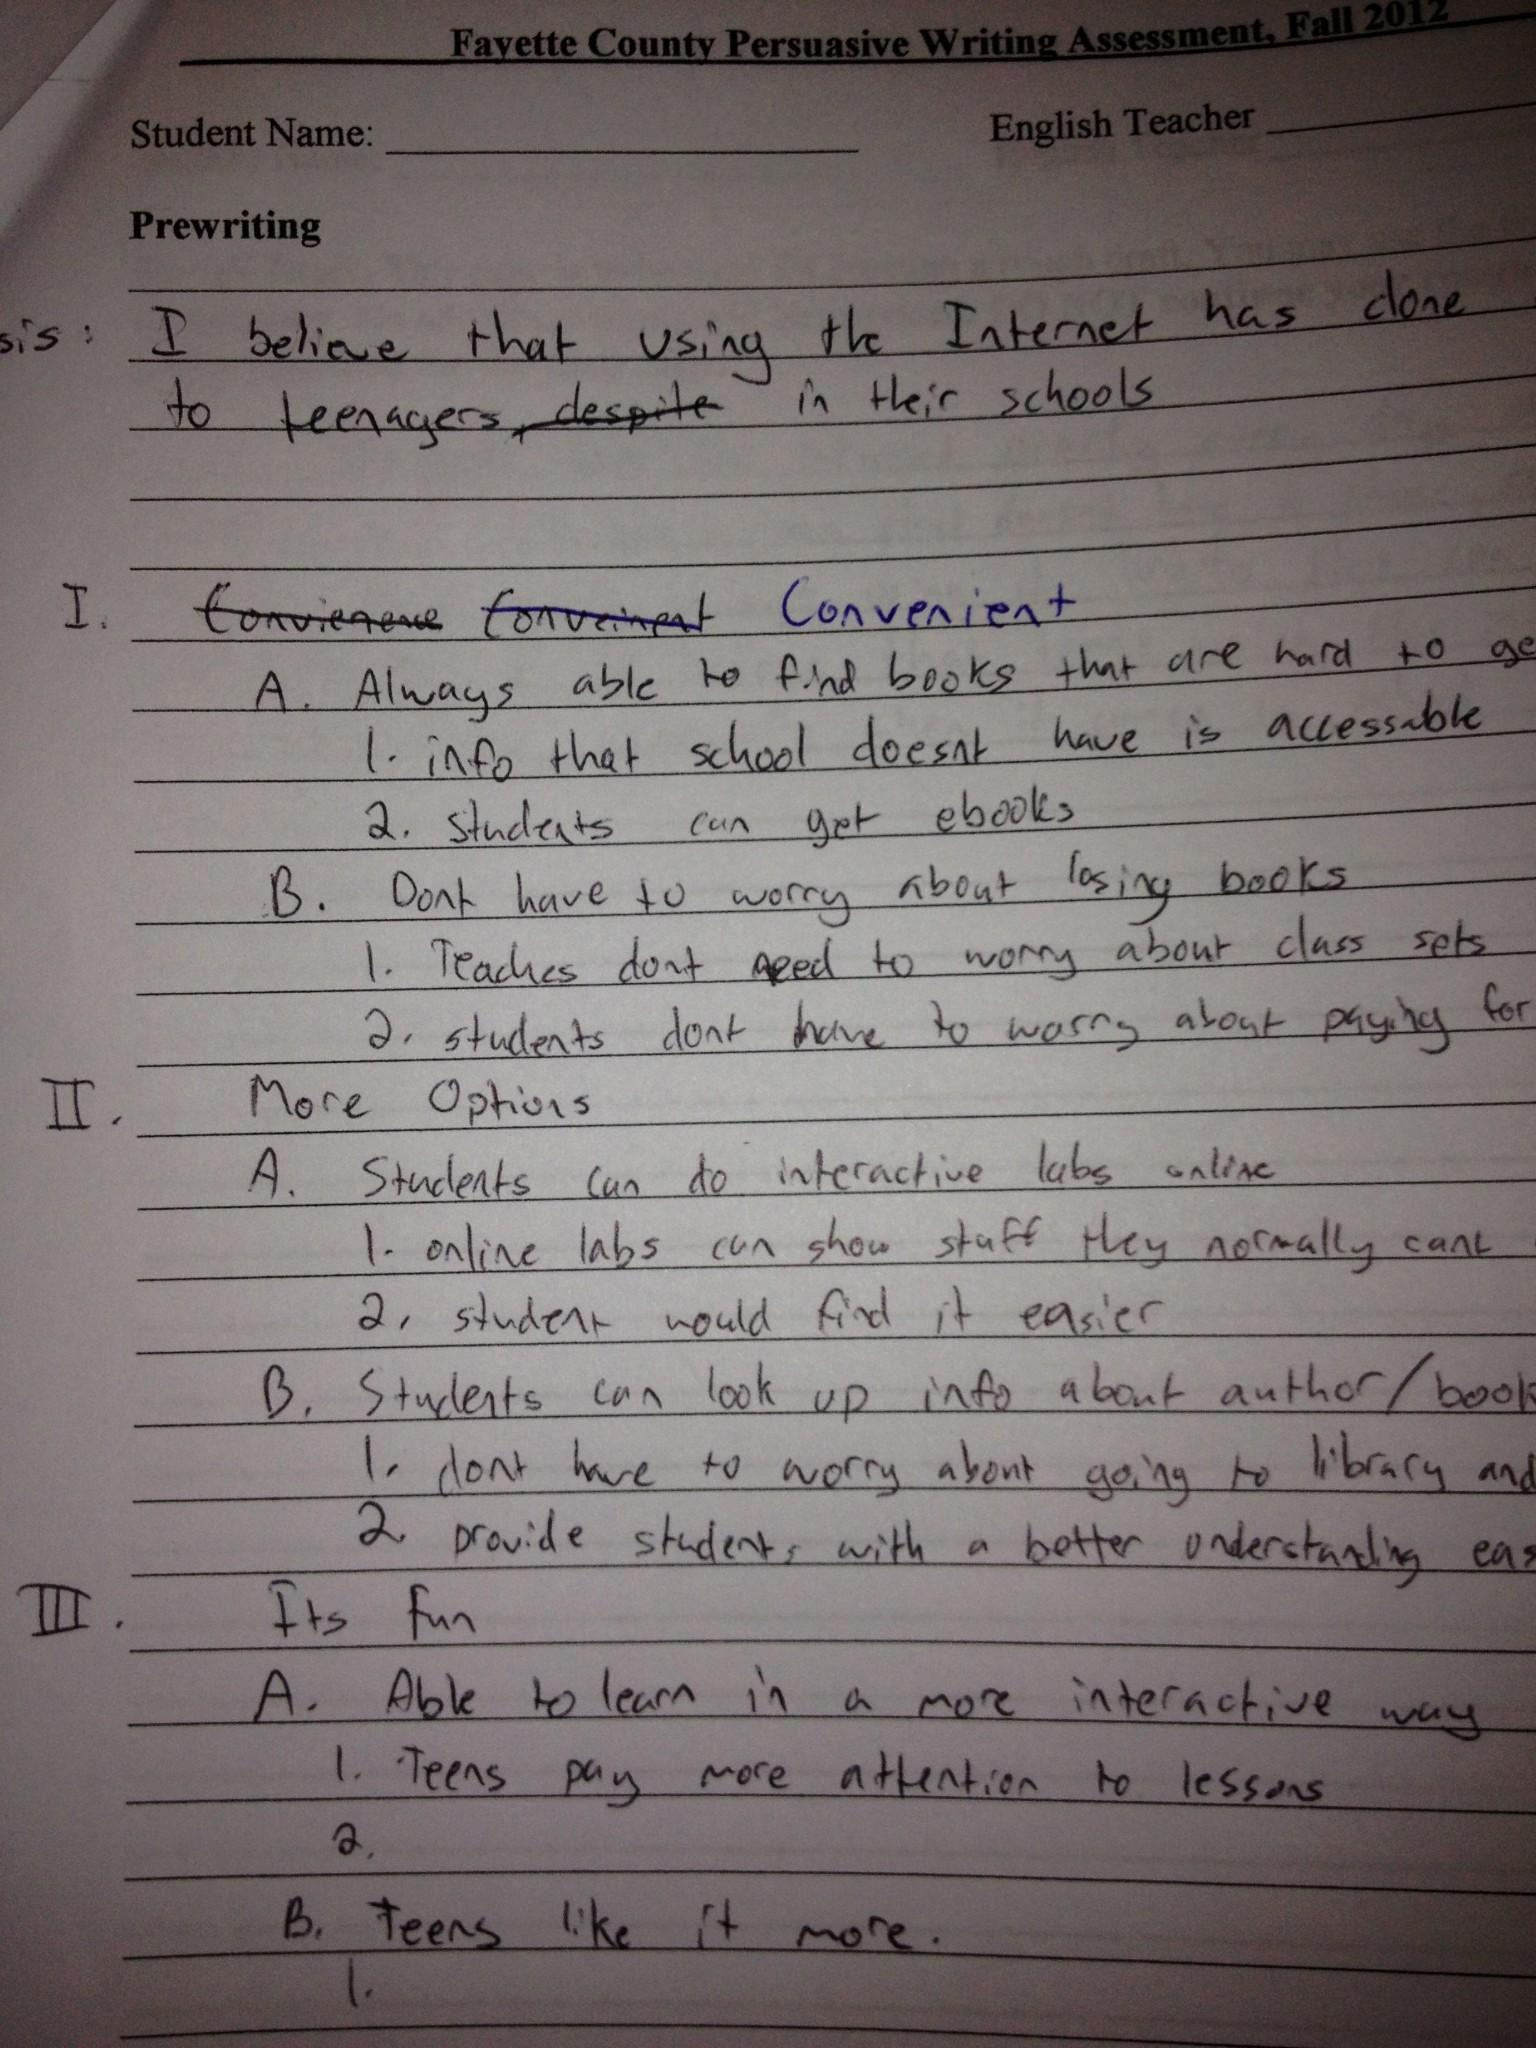 Fayette County Persuasive Writing Assessment, Fall 2012
Student Name: English Teacher
Prewriting
sis: I believe that using the Internet has done
to teenagers, despite in their schools
I. Convienence Conveinent Convenient
A. Always able to find books that are hard to ge
1. info that school doesnt have is accessable
2. students can get ebooks
B. Dont have to worry about losing books
1. Teaches dont need to worry about class sets
2. students dont have to worry about paying for
II. More Options
A. Students can do interactive labs online
1. online labs can show stuff they normally cant
2. student would find it easier
B. Students can look up info about author/book
1. dont have to worry about going to library and
2. provide students with a better understanding eas
III. Its fun
A. Able to learn in a more interactive way
1. Teens pay more attention to lessons
2.
B. Teens like it more.
1.